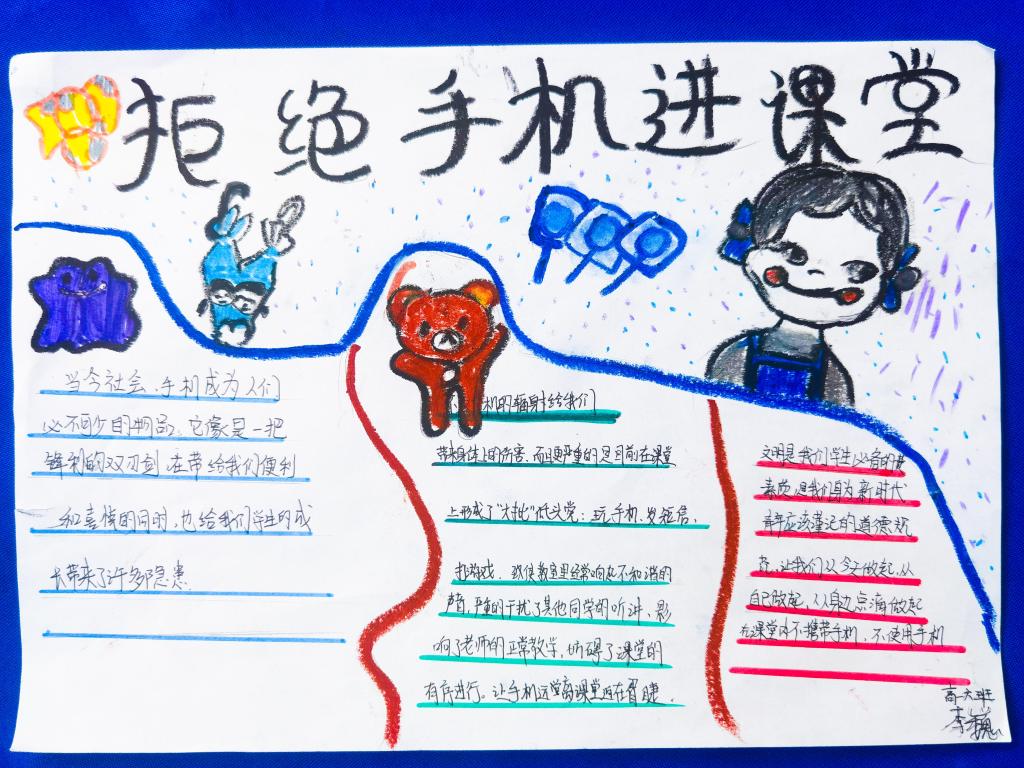 拒绝手机进课堂
当今社会,手机成为人们
必不可少的物品,它像是一把
锋利的双刃剑在带给我们便利
和喜悦的同时,也给我们学生的成
长带来了许多隐患.
机的辐射给我们
带来身体上的伤害,而且更严重的是目前在课堂
上形成了"大批"低头党:玩手机.发短信.
打游戏.致使教室里经常响起不和谐的
声音,严重的干扰了其他同学的听讲、影
响了老师的正常教学,妨碍了课堂的
有序进行。让手机远离课堂迫在眉睫.
文明是我们学生必备的
素质,是我们身为新时代
青年应该谨记的道德规
范,让我们从今天做起,从
自己做起,从身边点滴做起
在课堂内不携带手机,不使用手机
高一六班
李